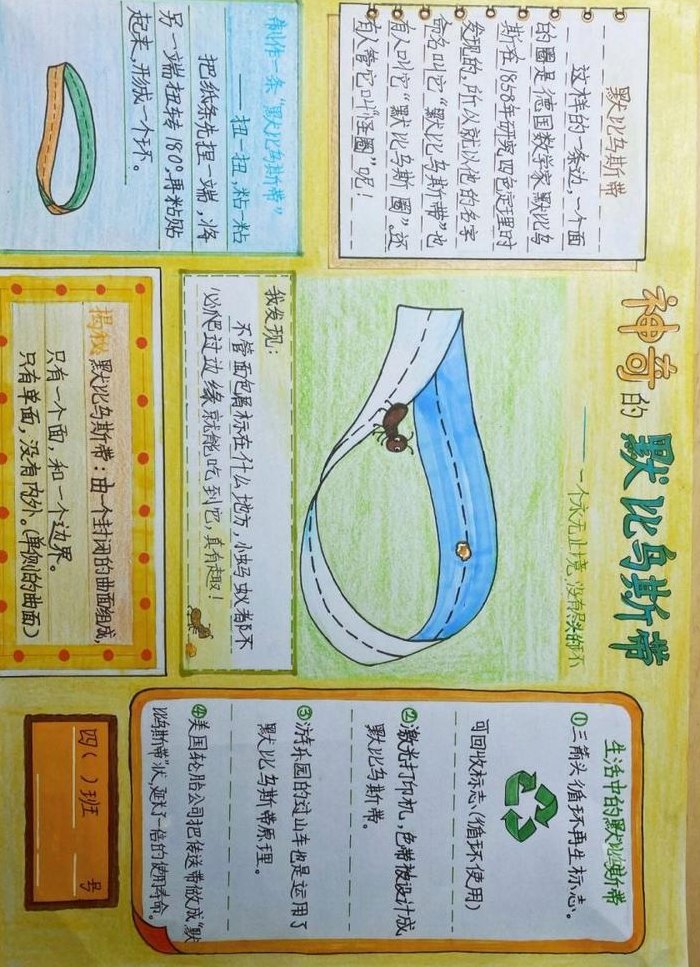 神奇的默比乌斯带
——一个永无止境,没有尽头的环
默比乌斯带
这样的一条边,一个面
的圈是德国数学家默比乌
斯在1858年研究四色定理时
发现的,所以就以他的名字
命名叫它“默比乌斯带”也
有人叫它“默比乌斯圈”,还
有人管它叫“怪圈”呢!
制作一条“默比乌斯带”
——扭一扭,粘一粘
把纸条先捏一端,将
另一端扭转180°,再粘贴
起来,形成一个环。
我发现:
不管面包屑标在什么地方,小蚂蚁都不
必爬过边缘就能吃到它,真有趣!
揭秘默比乌斯带:由一个封闭的曲面组成,
只有一个面,和一个边界。
只有单面,没有内外。(单侧的曲面)
生活中的默比乌斯带
①三箭头循环再生标志。
可回收标志(循环使用)
②激光打印机,色带被设计成
默比乌斯带。
③游乐园的过山车也是运用了
默比乌斯带原理。
④美国轮胎公司把传送带做成“默
比乌斯带”状,延长了一倍的使用寿命。
四( )班 号